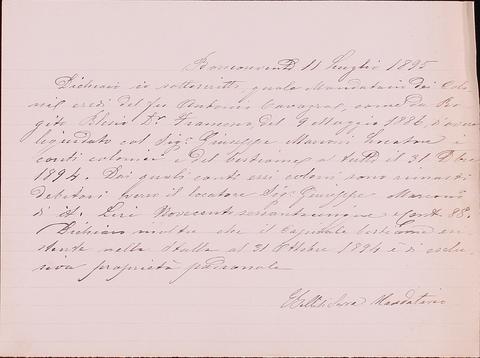 Bonconvento 11 Luglio 1895
Dichiaro io sottoscritto, quale Mandatario dei Colo-
ni ed eredi del fu Antonio Cavagna, come da Ro-
gito Dr. Francesco, del 9 Maggio 1886, d'aver
liquidato col Sig. Giuseppe Marconi locatore i
conti colonici e del bestiame a tutto il 31 Dbre
1894. Dai quali conti essi coloni sono rimasti
debitori verso il locatore Sig. Giuseppe Marconi
di It. Lire Novecento e Cent. 88.
Dichiaro inoltre che il Capitale bestiame esi-
stente nella stalla al 31 Ottobre 1894 è di esclu-
siva proprietà padronale
Mandatario